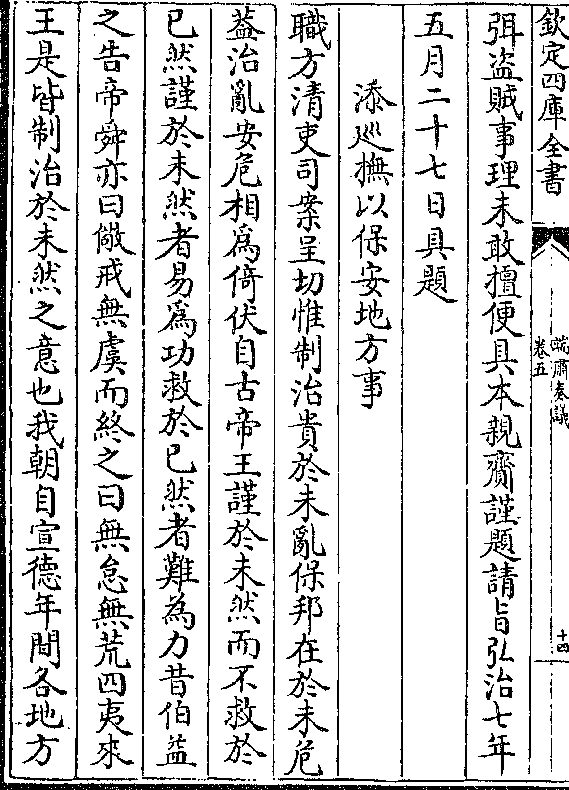 欽定四庫全書
端肅奏議
卷五
十四
弭盗賊事理未敢擅便具本親齎謹題請㫖弘治七年
五月二十七日具題
添廵撫以保安地方事
職方清吏司案呈切惟制治貴於未亂保邦在於未危
葢治亂安危相為倚伏自古帝王謹於未然而不救於
已然謹於未然者易為功救於已然者難為力昔伯益
之告帝舜亦曰儆戒無虞而終之曰無怠無荒四夷來
王是皆制治於未然之意也我朝自宣德年間各地方